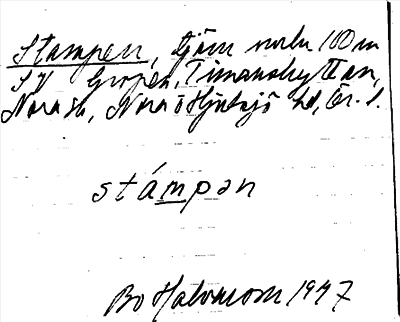 Stampen, tjärn nordn 100 m
SV Gropen, Timanshyttan,
Nora sn, Nora o Hjulsjö hd, Ör. l.
stámpən
Bo Halvarson 1947